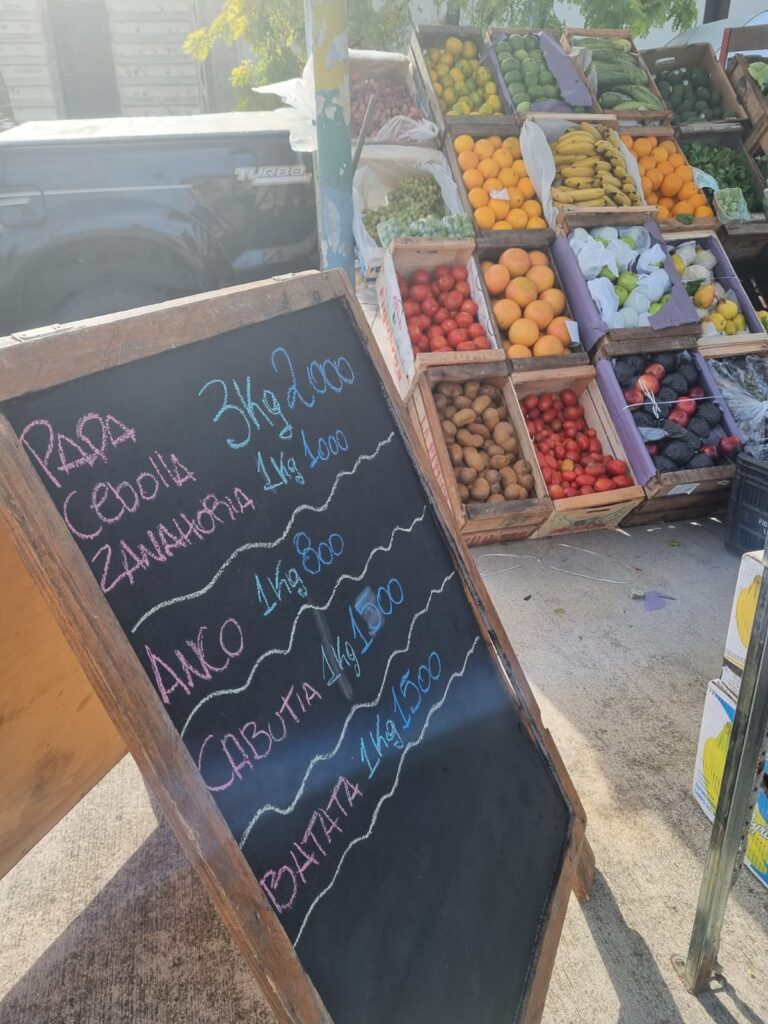 TURBO
PAPA 3Kg 2000
Cebolla
ZANAHORIA 1Kg 1000
ANCO 1Kg 800
CABUTIA 1Kg 1500
BATATA 1Kg 1500